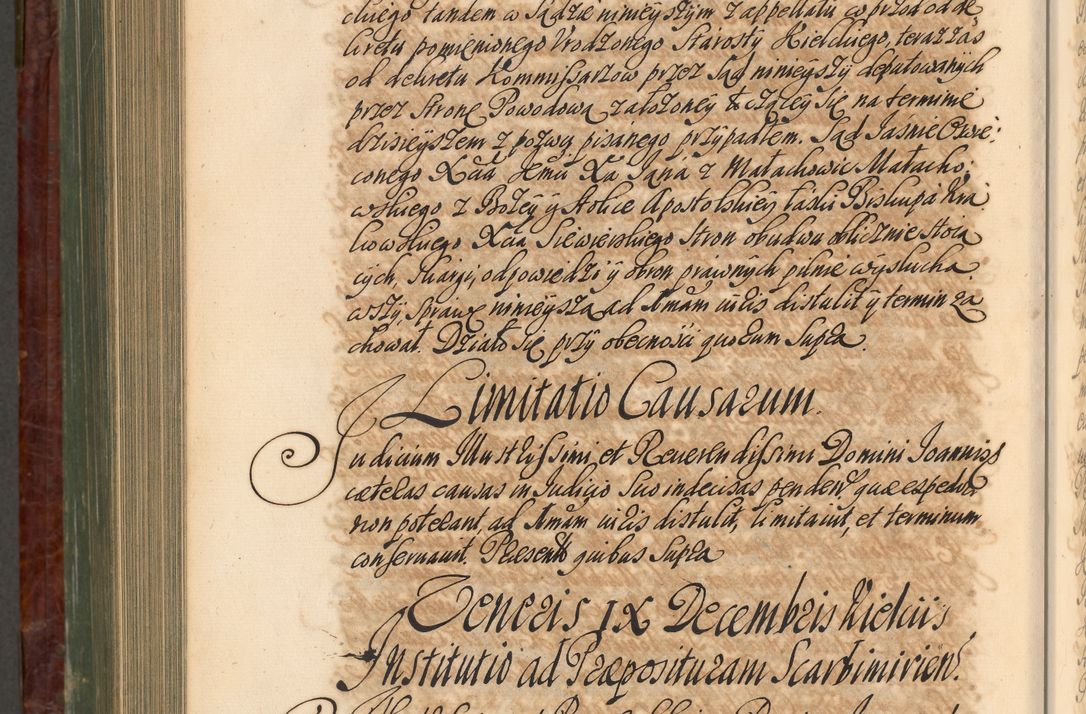 ckiego tandem w Sądzie ninieyszym z appellatii w przod od de
kretu pomienionego Urodzonego Starosty Kielckiego, teraz zas
od dekretu Kommissarzow przez Sąd ninieyszy deputowanych
przez Stronę Powodową założoney toczącey się na terminie
dzisieyszem z pozwu pisanego przypadłem. Sąd Jasnie Oswie:
conego Xcia Jemci Xa Jana z Małachowic Małacho:
wskiego z Bożey y Stolice Apostolskiey łaski Biskupa Kra
kowskiego Xcia Siewierskiego Stron obudwu oblicznie stoią
cych, Skargi, odpowiedzi y obron prawnych pilnie wysłucha
wszy, Sprawę ninieyszą ad Imam iuris distulit y termin za
chował. Działo się przy obecności quorum Supra.
Limitatio Causarum.
Judicium Illustrissimi et Reverendissimi Domini Joannis
cæteras causas in Judicio Suo indecisas penden quæ expediri
non poterant, ad Imam iuris distulit, limitavit, et terminum
conservavit. Præsentib quibus Supra
Veneris IX Decembris Kielciis
Institutio ad Præposituram Scarbimirien.